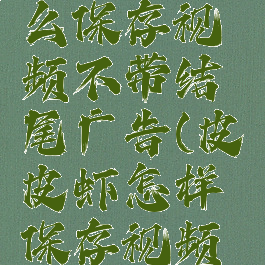 么保存视
频不带结
尾广告(皮
皮虾怎样
保存视频